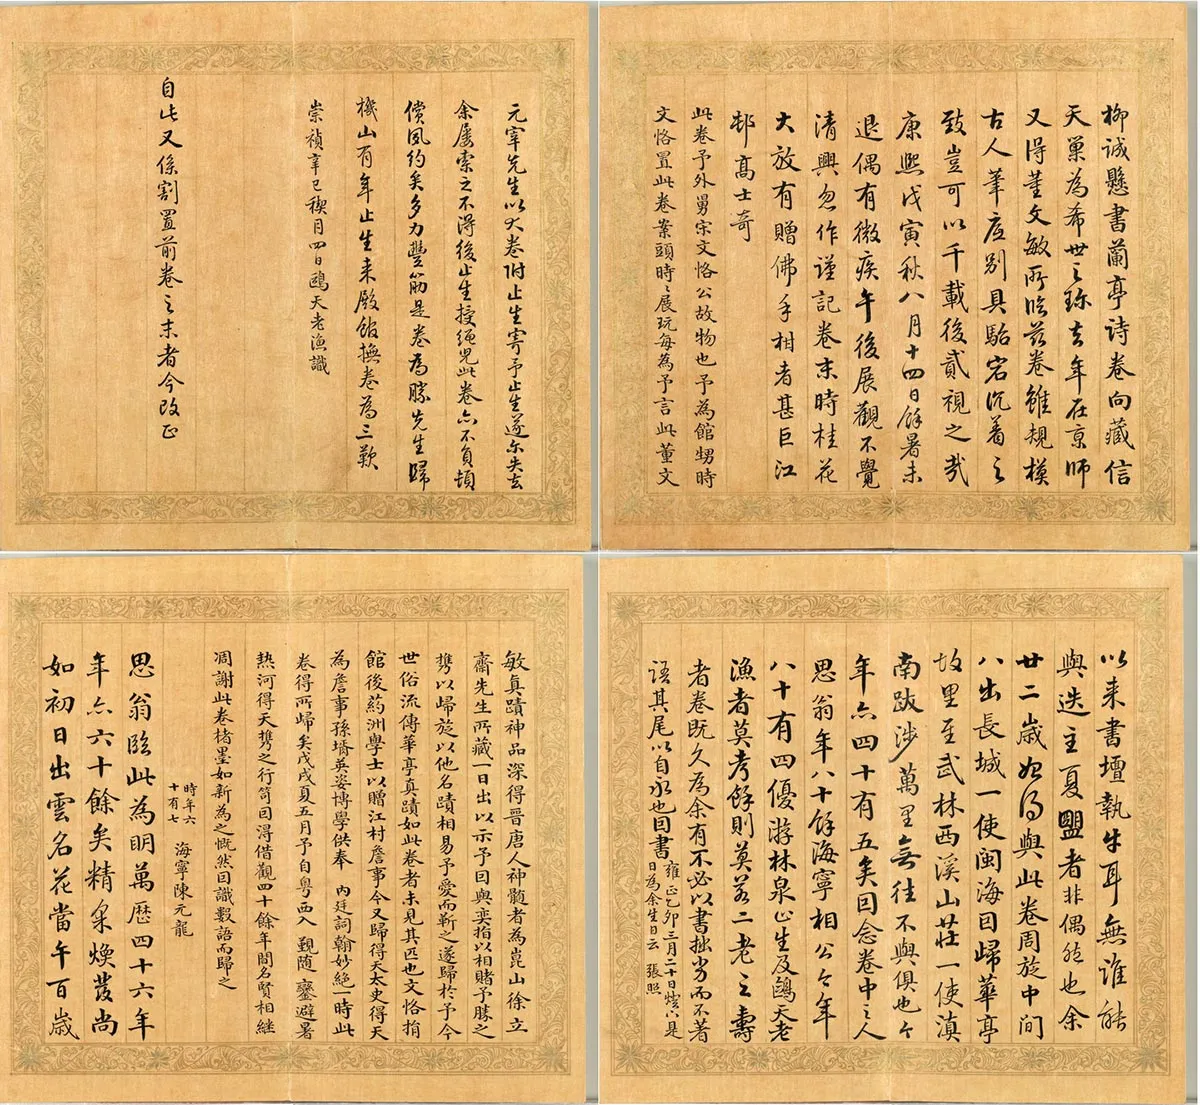 元宰先生以大卷附止生寄予止生遂尓失去
余屢索之不得後止生授繩児此卷亦不負頓
償夙約矣多力豐筋是卷為勝先生歸
機山有年止生来殿飯撫卷為三歎
崇禎辛巳禊月四日鷗天老漁識
自此又係割置前卷之末者今改正
柳誠懸書蘭亭詩卷向藏信
天巢為希世之珍去年在京師
又得董文敏所臨茲卷雖規模
古人筆底別具駘宕沉着之
致豈可以千載後貳視之哉
康熙戊寅秋八月十四日餘暑未
退偶有微疾午後展觀不覺
清興忽作謹記卷末時桂花
大放有贈佛手柑者甚巨江
邨高士奇
此卷予外舅宋文恪公故物也予為館甥時
文恪置此卷案頭時々展玩每為予言此董文
敏真蹟神品深得晉唐人神髓者為崑山徐立
齋先生所藏一日出以示予曰與奕指以相賭予勝之
携以歸旋以他名蹟相易予愛而靳之遂歸於予今
世俗流傳華亭真蹟如此卷者未見其匹也文恪捐
館後葯洲學士以贈江村詹事今又歸得天太史得天
為詹事孫壻英姿博學供奉 內廷詞翰妙絕一時此
卷得所歸矣戊戌夏五月予自粵西入 覲隨 鑾避暑
熱河得天携之行笥因得借觀四十餘年間名賢相継
凋謝此卷楮墨如新為之慨然因識數語而歸之
時年六
十有七
海寧陳元龍
思翁臨此為明萬歷四十六年
年亦六十餘矣精采煥發尚
如初日出雲名花當午百歲
以来書壇執牛耳無誰能
與迭主夏盟者非偶然也余
廿二歲始得與此卷周旋中間
八出長城一使閩海因歸華亭
故里至武林西溪山莊一使滇
南跋涉萬里無往不與俱也今
年亦四十有五矣因念卷中之人
思翁年八十餘海寧相公今年
八十有四優游林泉止生及鷗天老
漁者莫考餘則莫若二老之壽
者卷既久為余有不必以書拙劣而不著
語其尾以自永也因書
雍正乙卯三月二十日燈下是
日為余生日云 張照